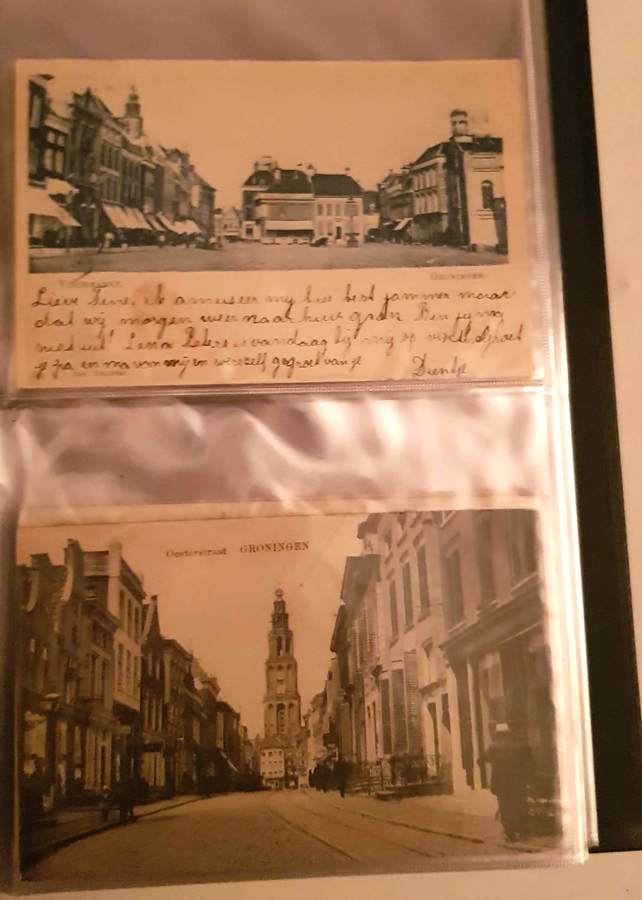 Vischmarkt GRONINGEN
Lieve Sine, ik amuseer mij hier best jammer maar
dat wij morgen weer naar huis gaan. Ben jij nog
niet uit? Lena Peters is vandaag bij mij op visite. Groet
je pa en ma van mij en wees zelf gegroet van je
Dientje
Oosterstraat GRONINGEN